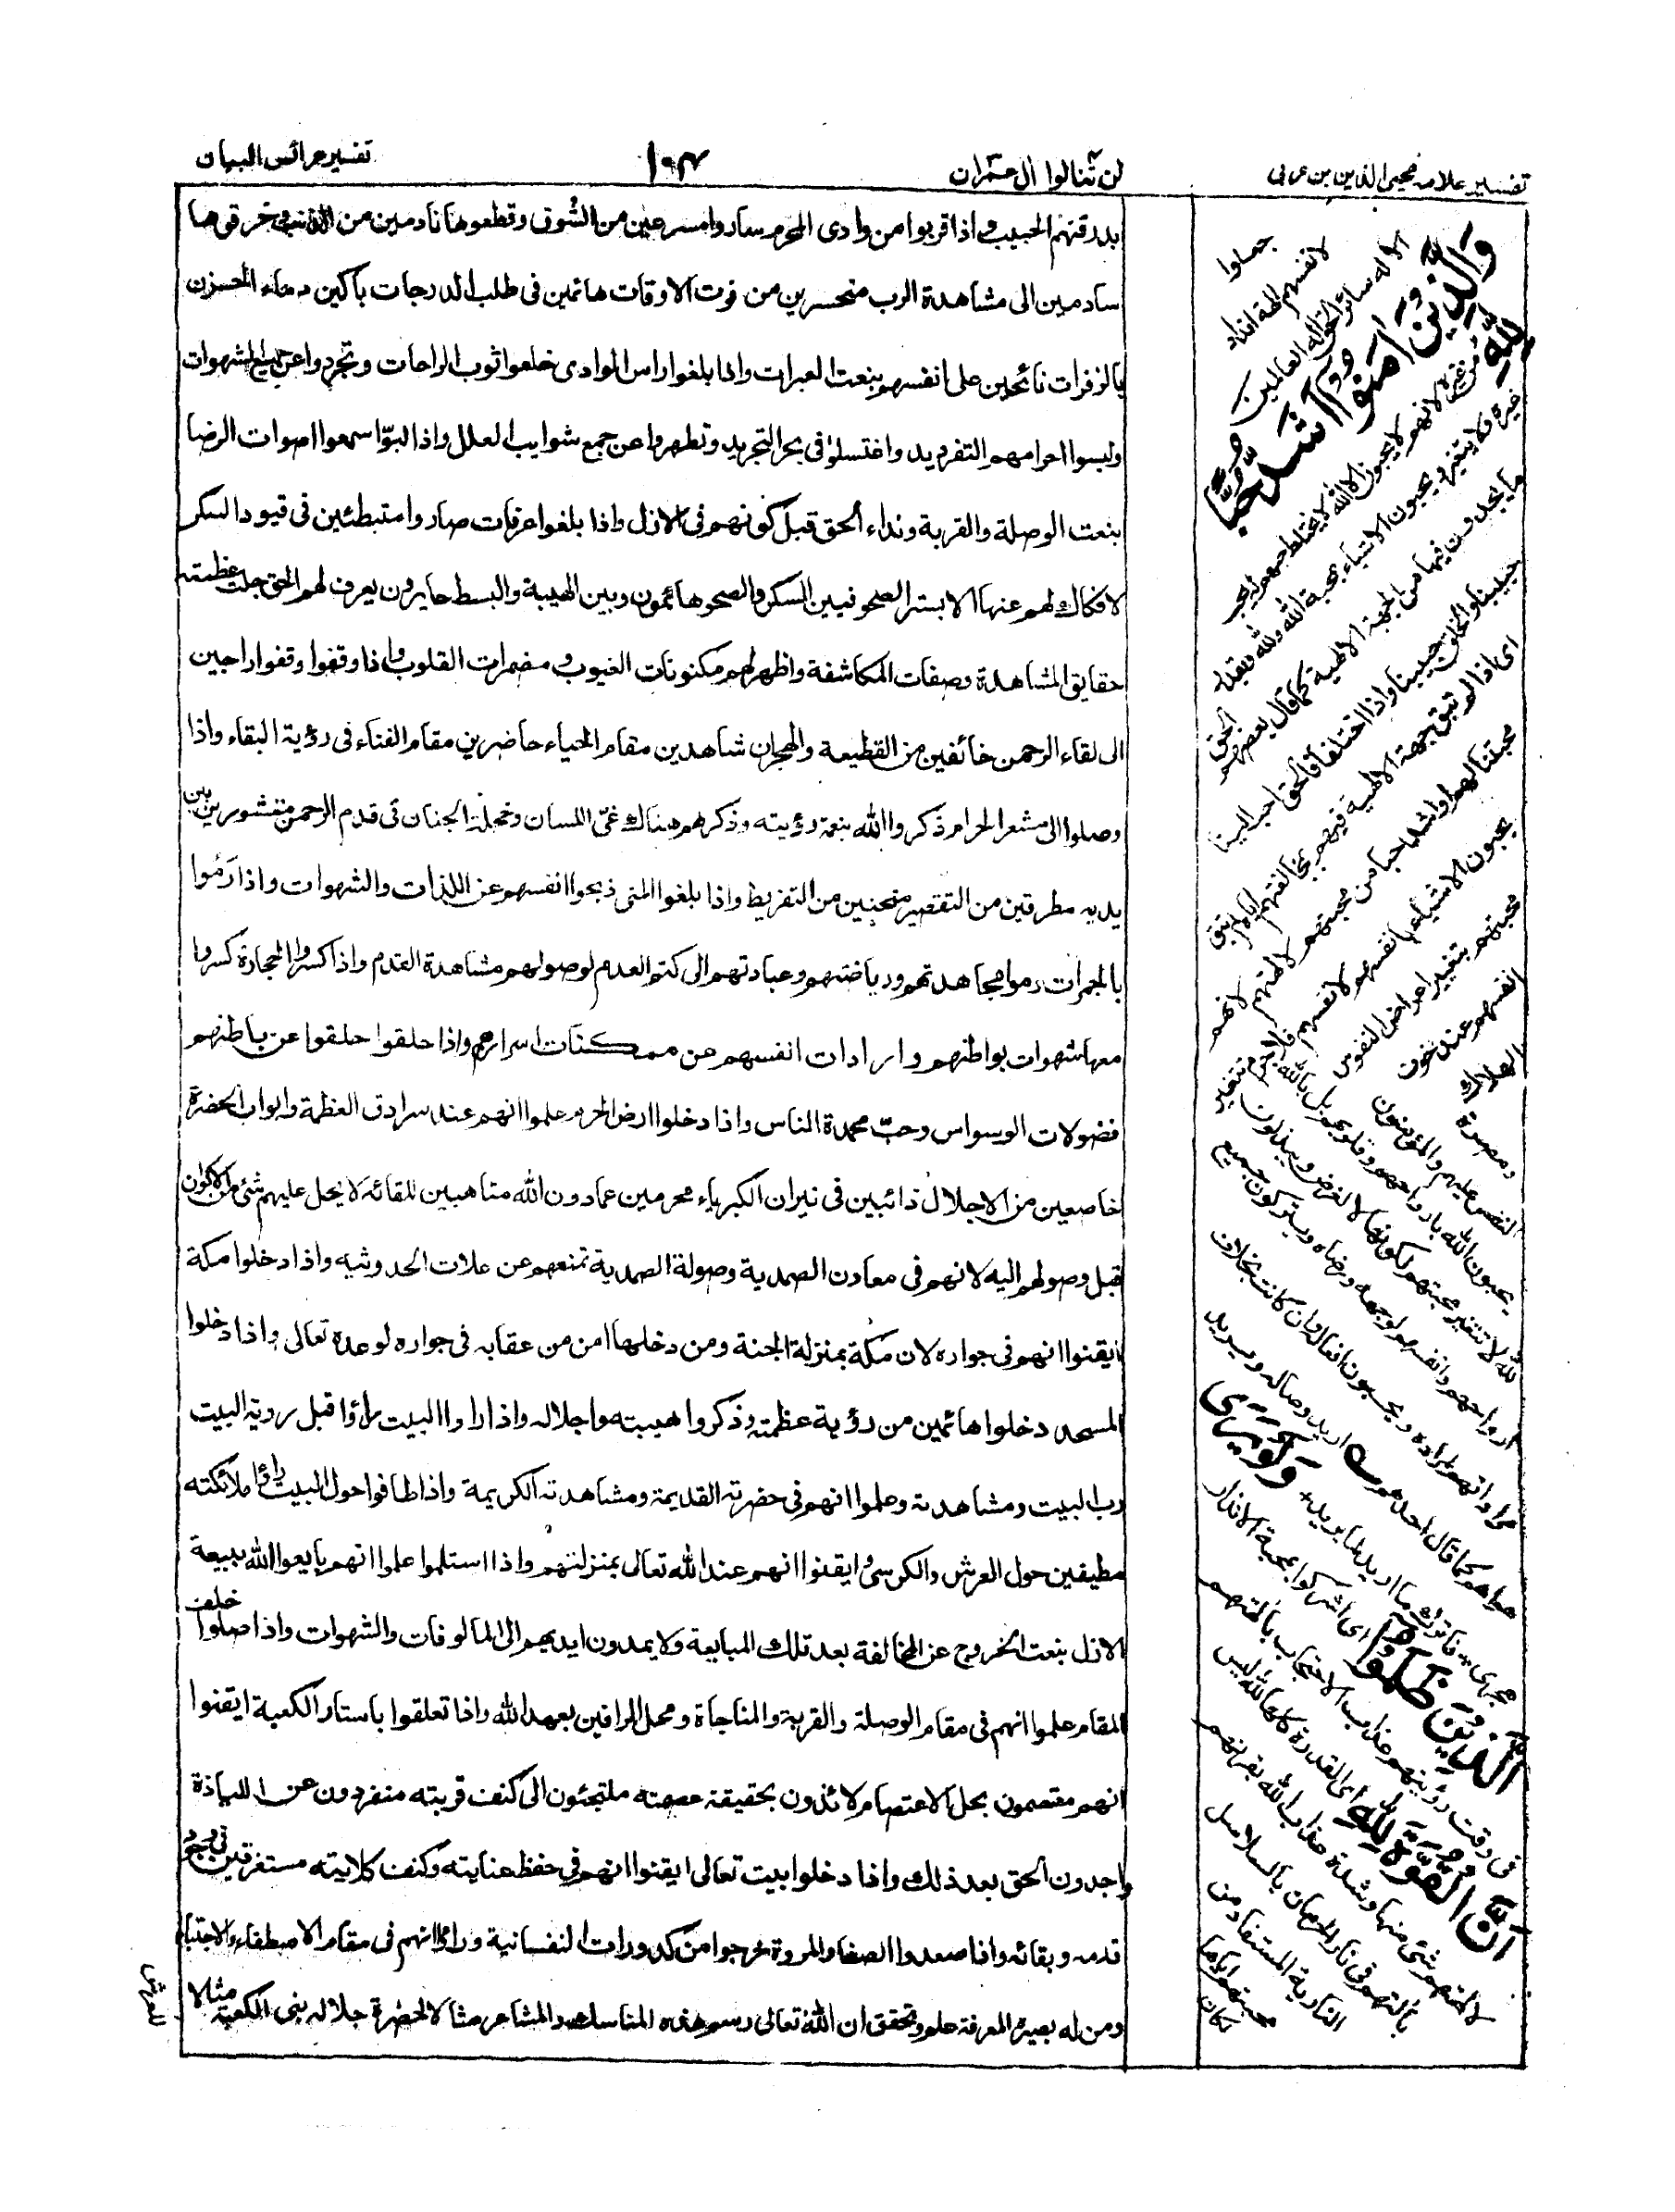 تفسير علامه محيى الدين بن عربى
لن تنالوا ال عمران
١٠٣
تفسير عرائس البيان
بدرقتهم الحبيب واذا قربوا من وادى المحرم ساروا مسرعين من الشوق وقطعوها نادمين من الذنب
سادمين الى مشاهدة الرب متحسرين من فوت الاوقات هائمين فى طلب الدرجات باكين دماء الحزن
بالزفرات نائحين على انفسهم بنعت العبرات واذا بلغوا راس الوادى خلعوا ثوب الراحات وتجردوا عن جميع الشهوات
ولبسوا احرامهم التفريد واغتسلوا فى بحر التجريد وتطهروا عن جمع شوايب العلل واذا لبوا سمعوا اصوات الرضا
بنعت الوصلة والقربة ونداء الحق قبل كونهم فى الازل واذا بلغوا عرفات صاروا مستبطئين فى قيود السكر
لا فكاك لهم عنها الا بستر الصحو فبين السكر والصحو هائمون وبين الهيبة والبسط حايرون يعرف لهم الحق جلت عظمته
حقايق المشاهدة وصفات المكاشفة واظهر لهم مكنونات الغيوب ومضمرات القلوب واذا وقفوا وقفوا راجين
الى لقاء الرحمن خائفين من القطيعة والهجران شاهدين مقام الحياء حاضرين مقام الفناء فى رؤية البقاء واذا
وصلوا الى مشعر الحرام ذكروا الله بنعت رؤيته وذكرهم هنالك عىّ اللسان وخجلة الجنان فى قدم الرحمن منشورين بين
يديه مطرقين من التقصير منحنين من التفريط واذا بلغوا المنى ذبحوا انفسهم عن اللذات والشهوات واذا رموا
بالجمرات رموا مجاهدتهم ورياضتهم وعبادتهم الى كتم العدم لوصولهم مشاهدة القدم واذا كسروا الحجارة كسروا
معها شهوات بواطنهم وارادات انفسهم عن ممكنات اسرارهم واذا حلقوا حلقوا عن باطنهم
فضولات الوسواس وحبّ محمدة الناس واذا دخلوا ارض الحرم علموا انهم عند سرادق العظمة وابواب الحضرة
خاضعين من الاجلال ذائبين فى نيران الكبرياء محرمين عما دون الله متاهبين للقائه لا يحل عليهم شئ من الاكوان
قبل وصولهم اليه لانهم فى معادن الصمدية وصولة الصمدية تمنعهم عن علات الحدوثيه واذا دخلوا مكة
ايقنوا انهم فى جواره لان مكة بمنزلة الجنة ومن دخلها امن من عقابه فى جواره لوعده تعالى واذا دخلوا
المسجد دخلوا هائمين من رؤية عظمته وذكروا هيبته واجلاله واذا راوا البيت راؤا قبل رؤية البيت
رب البيت ومشاهدته وعلموا انهم فى حضرته القديمة ومشاهدته الكريمة واذا طافوا حول البيت راؤا ملائكته
مطيفين حول العرش والكرسى وايقنوا انهم عند الله تعالى بمنزلتهم واذا استلموا علموا انهم بايعوا الله ببيعة
الازل بنعت الخروج عن المخالفة بعد تلك المبايعة ولا يمدون ايديهم الى المالوفات والشهوات واذا صلوا خلف
المقام علموا انهم فى مقام الوصلة والقربة والمناجاة ومحل الرافين بعهد الله واذا تعلقوا باستار الكعبة ايقنوا
انهم معتصمون بحبل الاعتصام لائذون بحقيقة عصمته ملتجئون الى كنف قربته منفردون عن اللياذة
واجدون الحق بعد ذلك واذا دخلوا بيت تعالى ايقنوا انهم فى حفظ عنايته وكنف كلايته مستغرقين فى
قدمه وبقائه واذا صعدوا الصفا والمروة خرجوا من كدورات النفسانية وراؤا انهم فى مقام الاصطفاء والاجتباء
ومن له بصيرة المعرفة علم وتحقق ان الله تعالى رسم هذه المناسك والمشاعر مثالا لحضرة جلاله بنى الكعبة مثالا
للعرش
جعلوا
لانفسهم الهة انداد
الا له سائر الحق اله العالمين
والذين امنوا اشد حبا
لله
من غيره لانهم لا يحبون الا الله لا يختلط حبهم
غيره فلا يتغير ويحبون الاشياء بمحبة الله ولله
فيها من الجهة الالهية كما قال بعضهم الحق
حبيبنا والخلق حبيبنا واذا اختلفا فالحق احب الينا
اى اذا لم تبق جهة الالهية فيهم بمخالفتهم اياه لم تبق
محبتنا لهم او اشد حبا من محبتهم لالهتهم لانهم
يحبون الاشياء بانفسهم لانفسهم فلا جرم تتغير
محبتهم بتغير اعراض النفوس
انفسهم عند خوف
الهلاك
ومضرة
النفس عليهم والمؤمنون
يحبون الله بارواحهم وقلوبهم بل بالله
لله لا تتغير محبتهم لكونها لا لغرض ويبذلون
ارواحهم وانفسهم لوجهه ورضاه ويتركون جميع
مراداتهم لمراده ويحبون افعاله وان كانت بخلاف
هواهم كما قال احدهم اريد وصاله ويريد
هجرى فاترك ما اريد لما يريد ولو يرى
الذين ظلموا اى اشركوا بمحبة الانداد
فى وقت رؤيتهم عذاب الاحتجاب بالهتهم
ان القوة لله اى القدرة كلها لله ليس
لالهتهم شئ منها وشدة عذاب الله بقرنهم
بالهتهم فى نار الحرمان بالسلاسل
النارية المستفاد من
محبتهم اياها
لكان